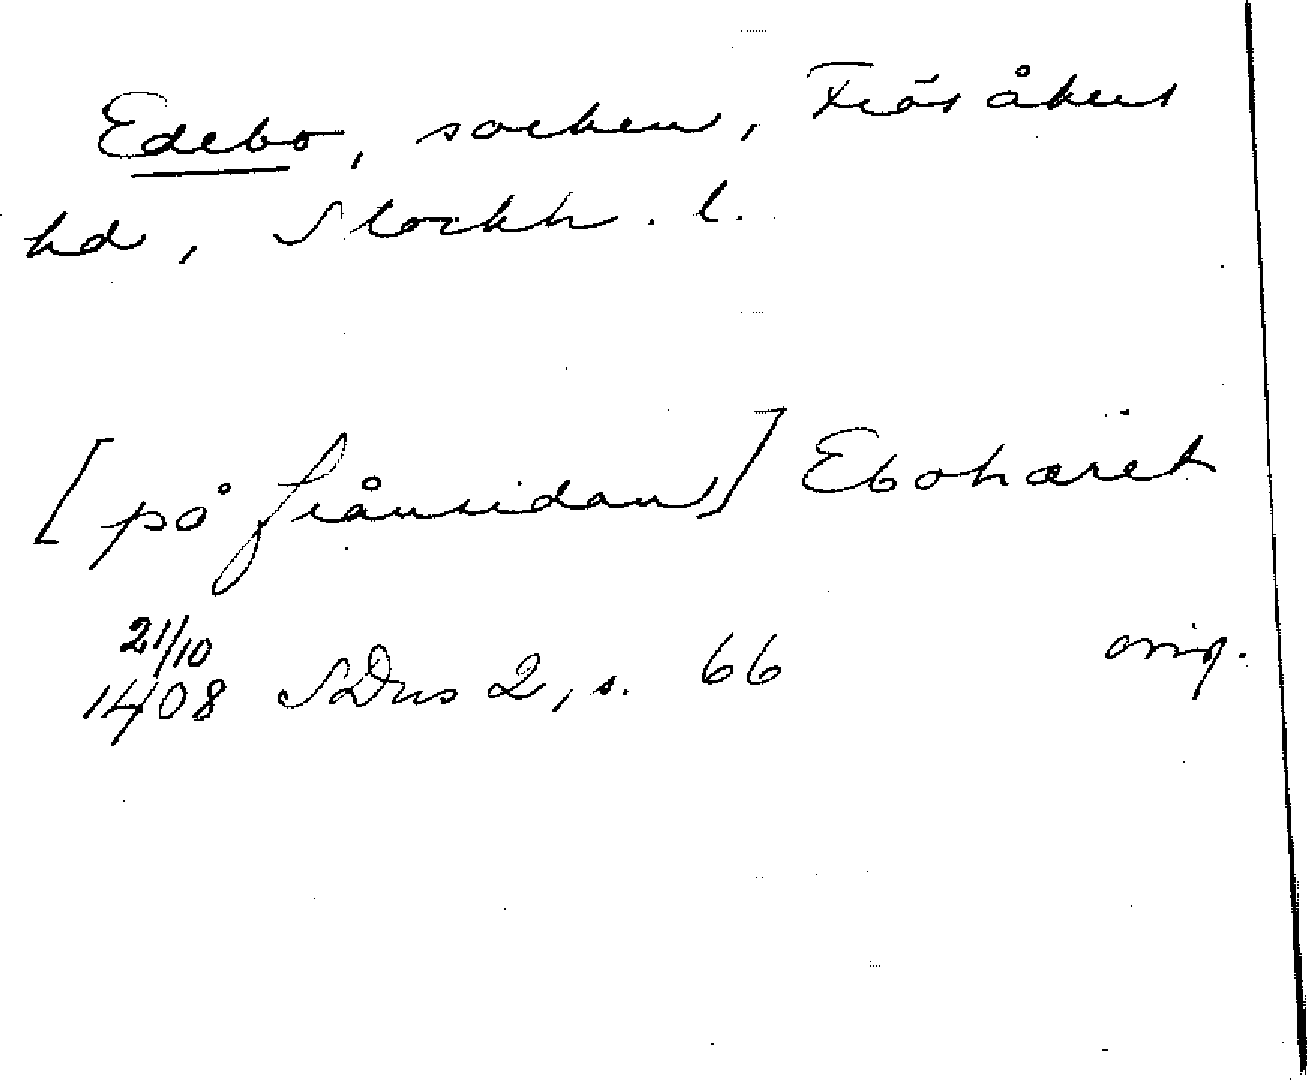 Edebo, socken, Frösåkers
hd, Stockh. l.
[på frånsidan] Ebohæret
21/10
1408 SDns 2, s. 66 orig.